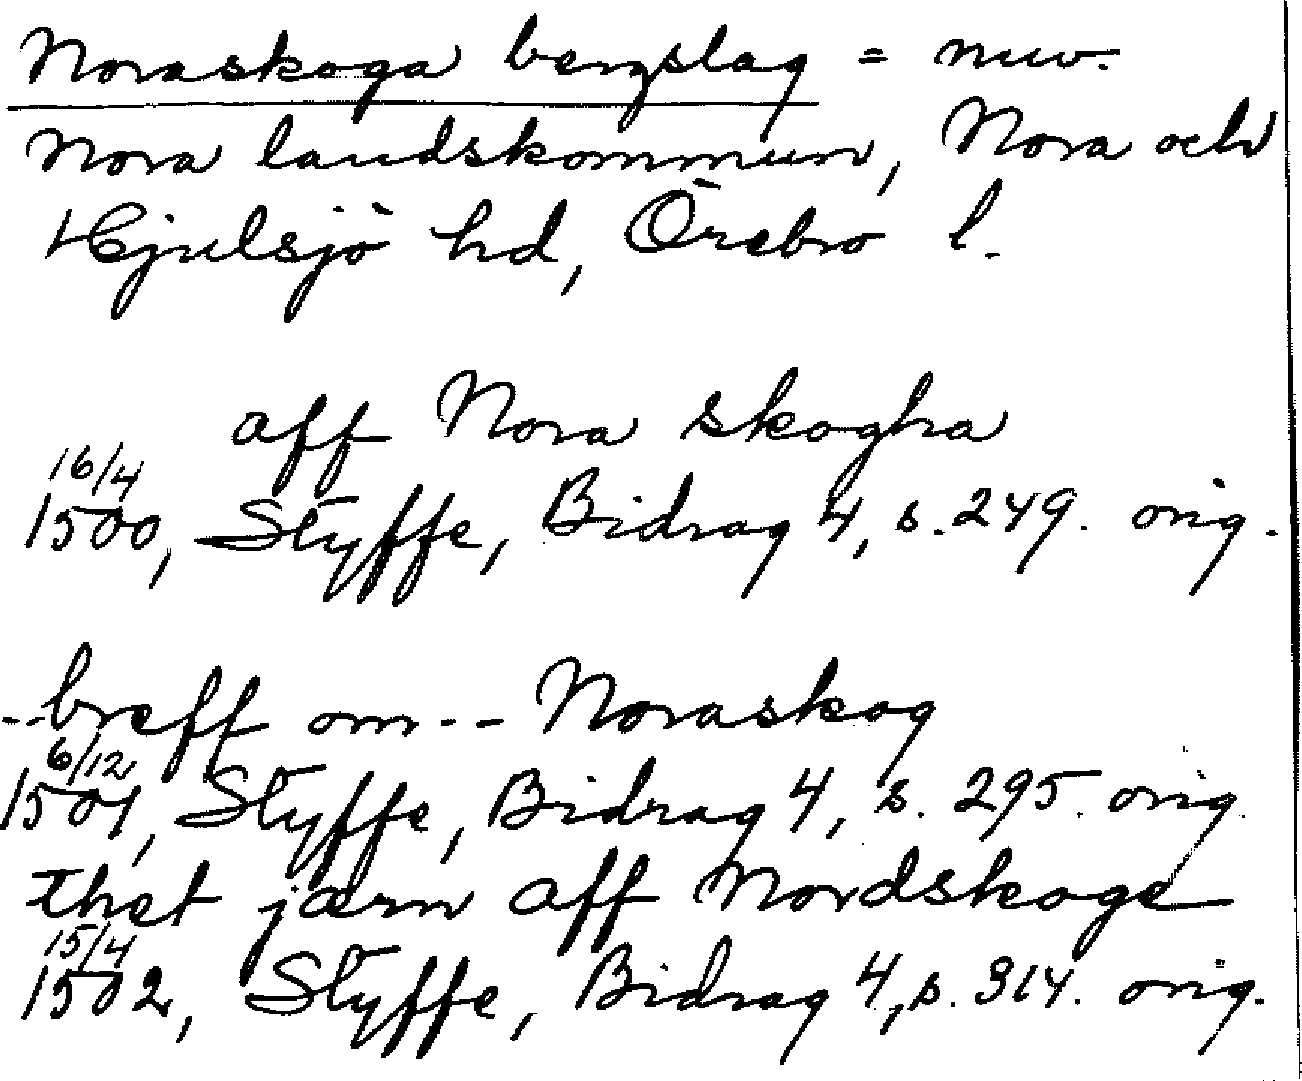 Noraskoga bergslag = nuv.
Nora landskommun, Nora och
Hjulsjö hd, Örebro l.
aff Nora skogha
16/4
1500, Styffe, Bidrag 4, s. 249. orig.
--breff om -- Noraskog
6/12
1501, Styffe, Bidrag 4, s. 295. orig.
thet jærn aff Nordskoge
15/4
1502, Styffe, Bidrag 4, s. 314. orig.